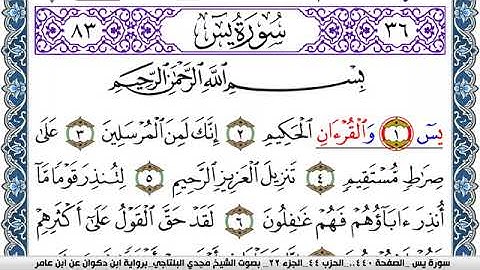 ٨٣ سُورَةُ يسٓ ٣٦
بِسْمِ اللَّهِ الرَّحْمَنِ الرَّحِيمِ
يسٓ ١ وَالْقُرْءَانِ الْحَكِيمِ ٢ إِنَّكَ لَمِنَ الْمُرْسَلِينَ ٣ عَلَىٰ
صِرَاطٍ مُّسْتَقِيمٍ ٤ تَنزِيلُ الْعَزِيزِ الرَّحِيمِ ٥ لِتُنذِرَ قَوْمًا مَّا
أُنذِرَ ءَابَآؤُهُمْ فَهُمْ غَٰفِلُونَ ٦ لَقَدْ حَقَّ الْقَوْلُ عَلَىٰٓ أَكْثَرِهِمْ
سورة يس _الصفحة ٤٤٠..._الحزب ٤٤_الجزء ٢٢_ بصوت الشيخ مجدي البلتاجي_برواية ابن ذكوان عن ابن عامر